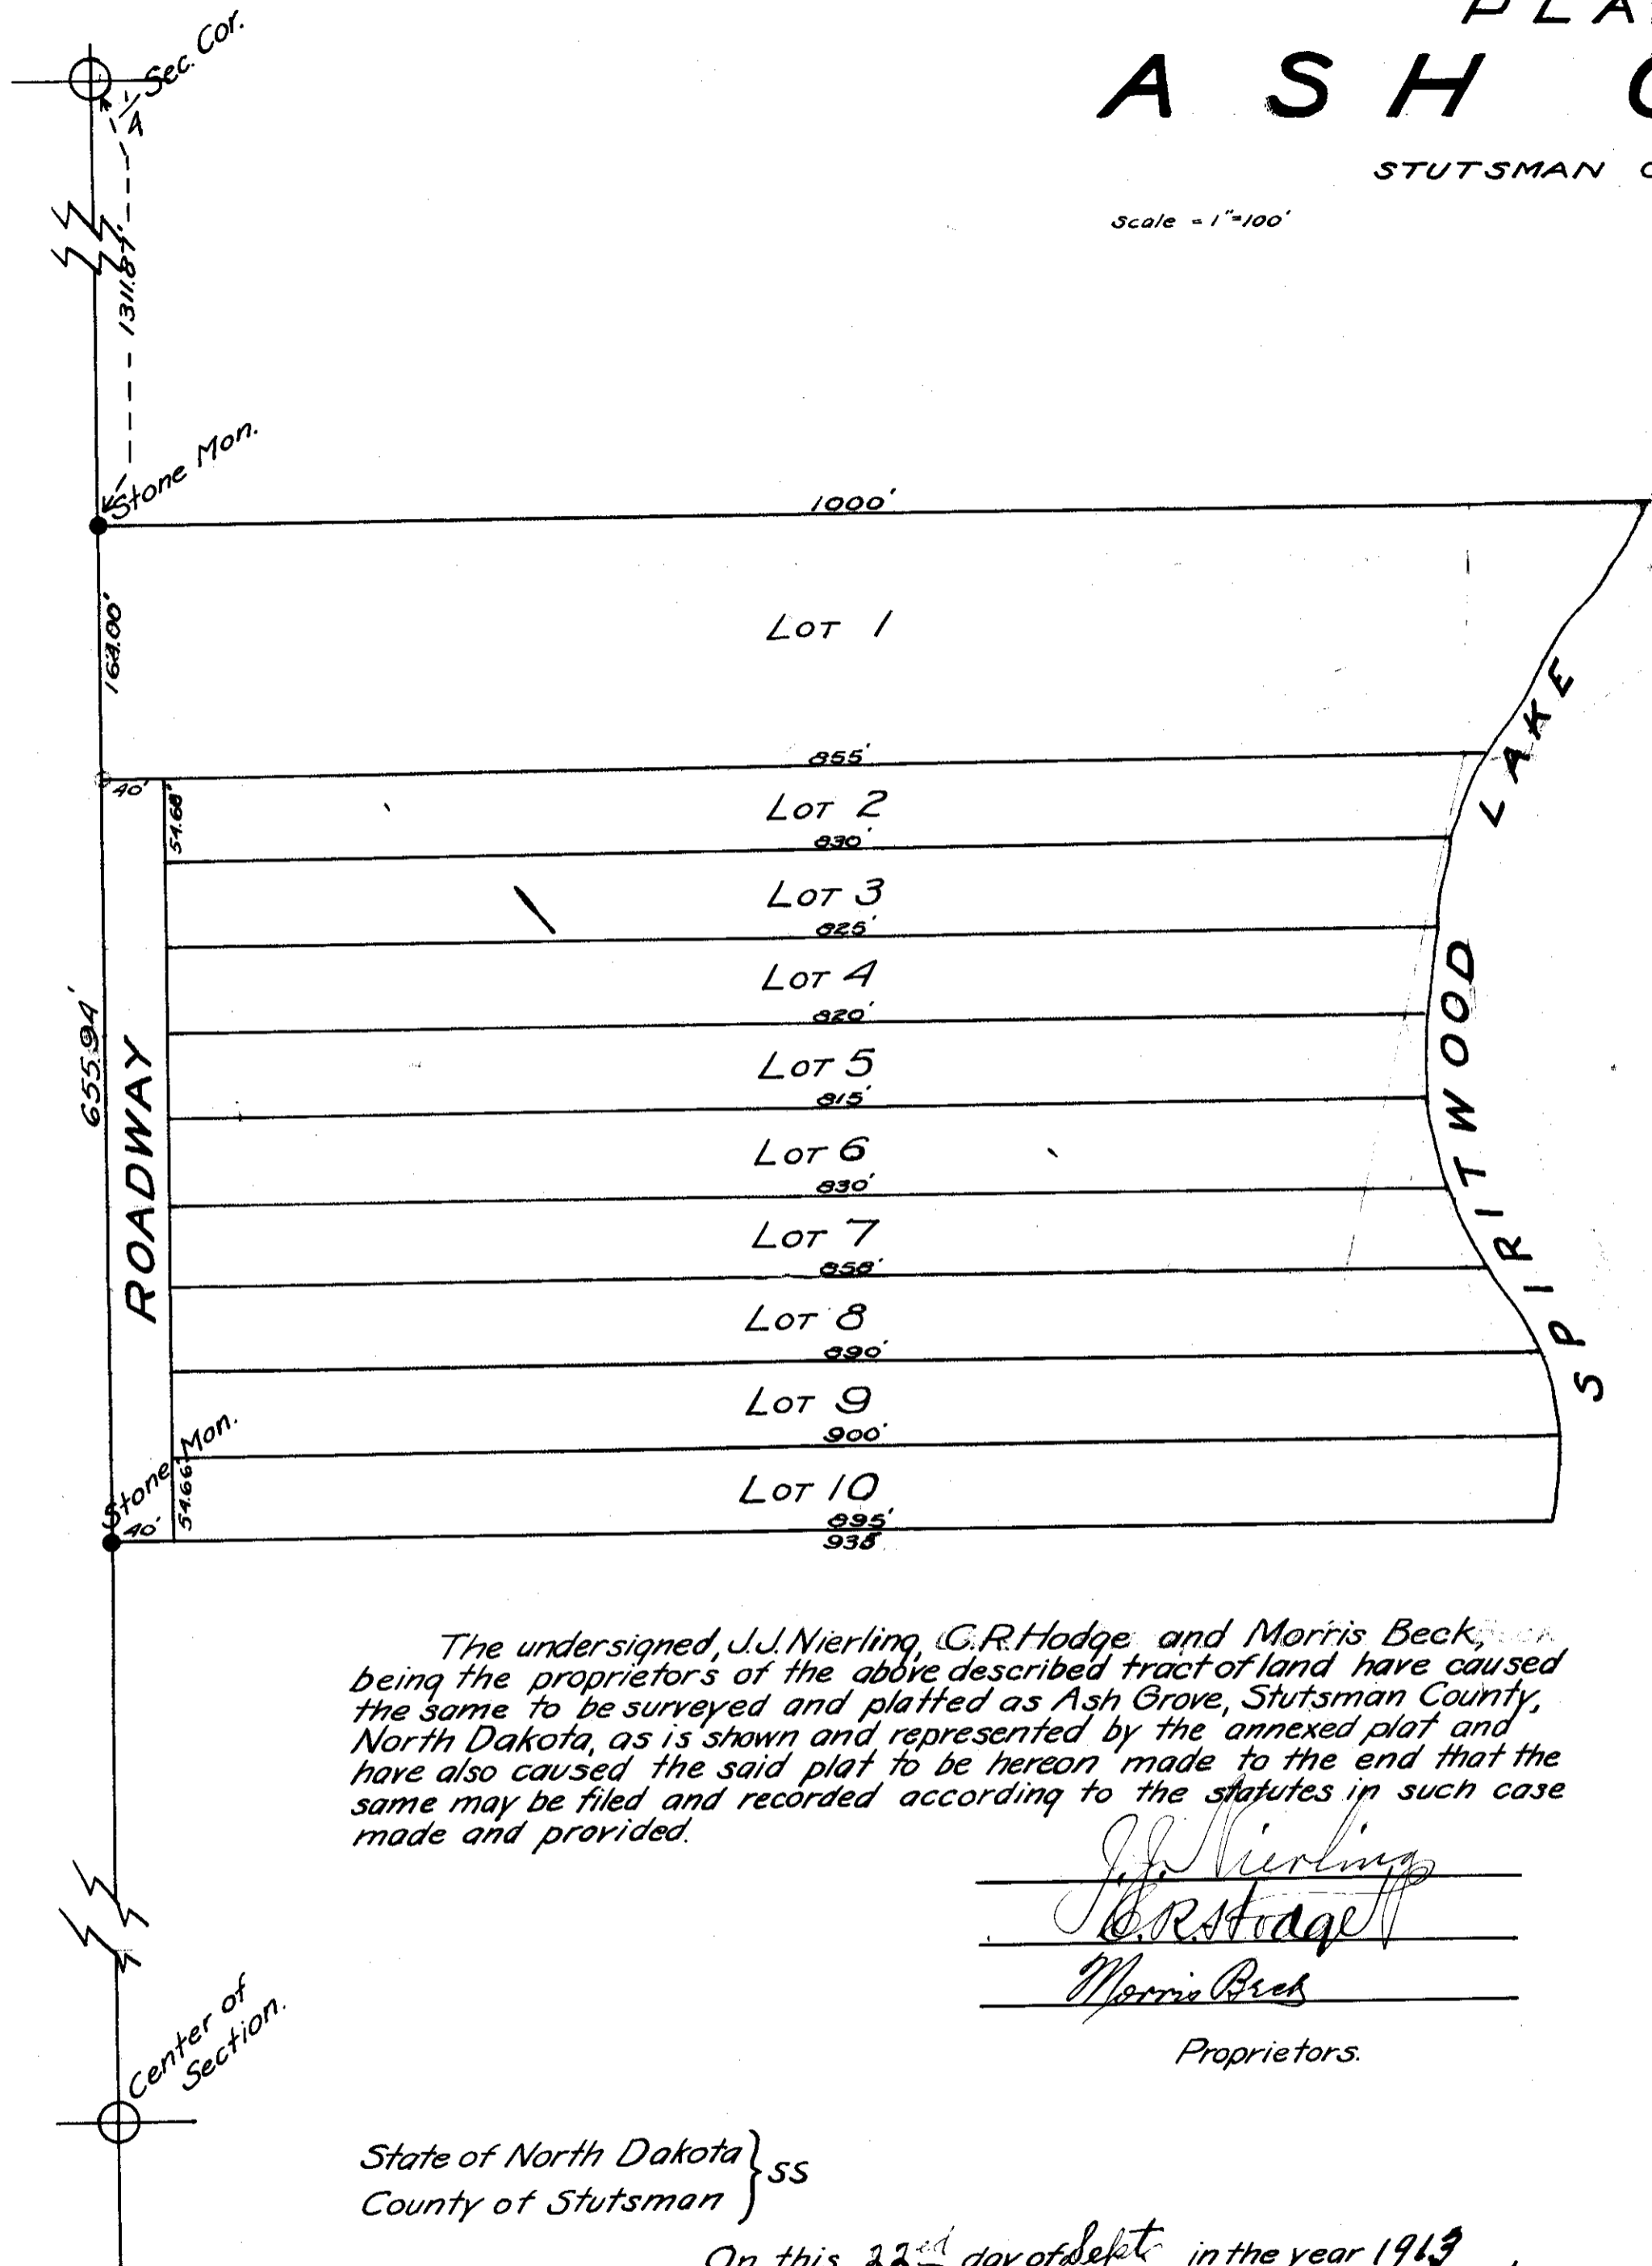 PLA
ASH
STUTSMAN
Scale = 1"=100'
1/4 Sec. Cor.
1311.87'
Stone Mon.
1000'
164.00'
LOT 1
855'
40'
LOT 2
830'
LOT 3
825'
LOT 4
820'
655.94'
ROADWAY
LOT 5
815'
LOT 6
830'
LOT 7
858'
LOT 8
890'
LOT 9
900'
Stone Mon.
54.66'
LOT 10
40'
895'
935
SPIRITWOOD LAKE
The undersigned, J.J. Nierling, C.R. Hodge and Morris Beck,
being the proprietors of the above described tract of land have caused
the same to be surveyed and platted as Ash Grove, Stutsman County,
North Dakota, as is shown and represented by the annexed plat and
have also caused the said plat to be hereon made to the end that the
same may be filed and recorded according to the statutes in such case
made and provided.
J.J. Nierling
C.R. Hodge
Morris Beck
Proprietors.
Center of
Section.
State of North Dakota } SS
County of Stutsman
On this 22ed day of Sept. in the year 1913